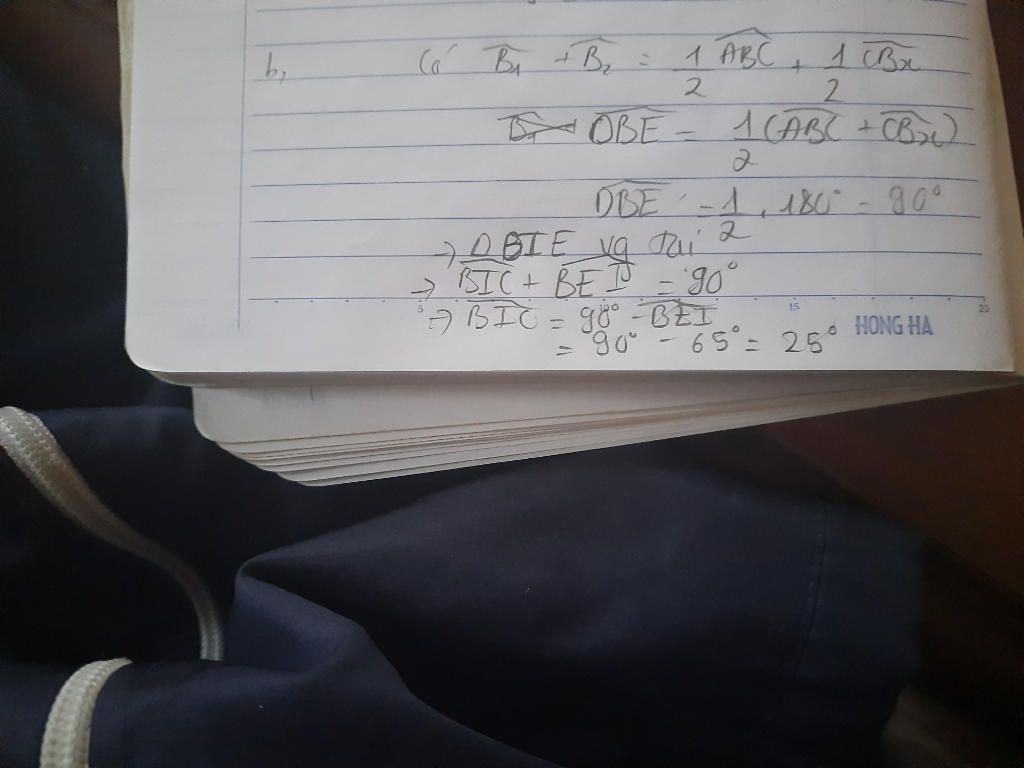 b, Có B₁ + B₂ = 1/2 ABC + 1/2 CBx
DBE = 1/2 (ABC + CBx)
DBE = 1/2 . 180° = 90°
→ Δ BIE vg tại
→ BIC + BEI = 90°
→ BIC = 90° - BEI
= 90° - 65° = 25°
5 15 20
HONG HA